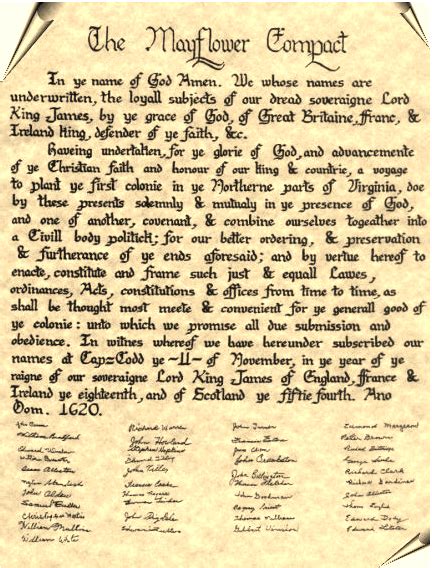 The Mayflower Compact
In ye name of God Amen. We whose names are
underwritten, the loyall subjects of our dread soveraigne Lord
King James, by ye grace of God, of Great Britaine, ffranc, &
Ireland king, defender of ye faith, &c.
Haveing undertaken, for ye glorie of God, and advancemente
of ye Christian faith and honour of our king & countrie, a voyage
to plant ye first colonie in ye Northerne parts of Virginia, doe
by these presents solemnly & mutualy in ye presence of God,
and one of another, covenant, & combine ourselves togeather into
a Civill body politick; for our better ordering, & preservation
& furtherance of ye ends aforesaid; and by vertue hereof to
enacte, constitute and frame such just & equall Lawes,
ordinances, Acts, constitutions & offices from time to time, as
shall be thought most meete & convenient for ye generall good of
ye colonie: unto which we promise all due submission and
obedience. In witnes whereof we have hereunder subscribed our
names at Cap=Codd ye ~11~ of November, in ye year of ye
raigne of our soveraigne Lord King James of England, ffrance &
Ireland ye eighteenth, and of Scotland ye fiftie fourth. Ano
Dom. 1620.
William Bradford
Edward Winslow
Isaac Allerton
John Alden
Samuel Fuller
William Mullins
William White
Richard Warren
John Howland
Stephen Hopkins
Edward Tilley
John Tilley
Francis Cooke
Thomas Rogers
John Rigdale
Edward Fuller
John Turner
Francis Eaton
John Billington
John Goodman
Degory Priest
Thomas Williams
Gilbert Winslow
Edmund Margeson
Peter Browne
George Soule
Richard Clark
Richard Gardiner
John Allerton
Edward Doty